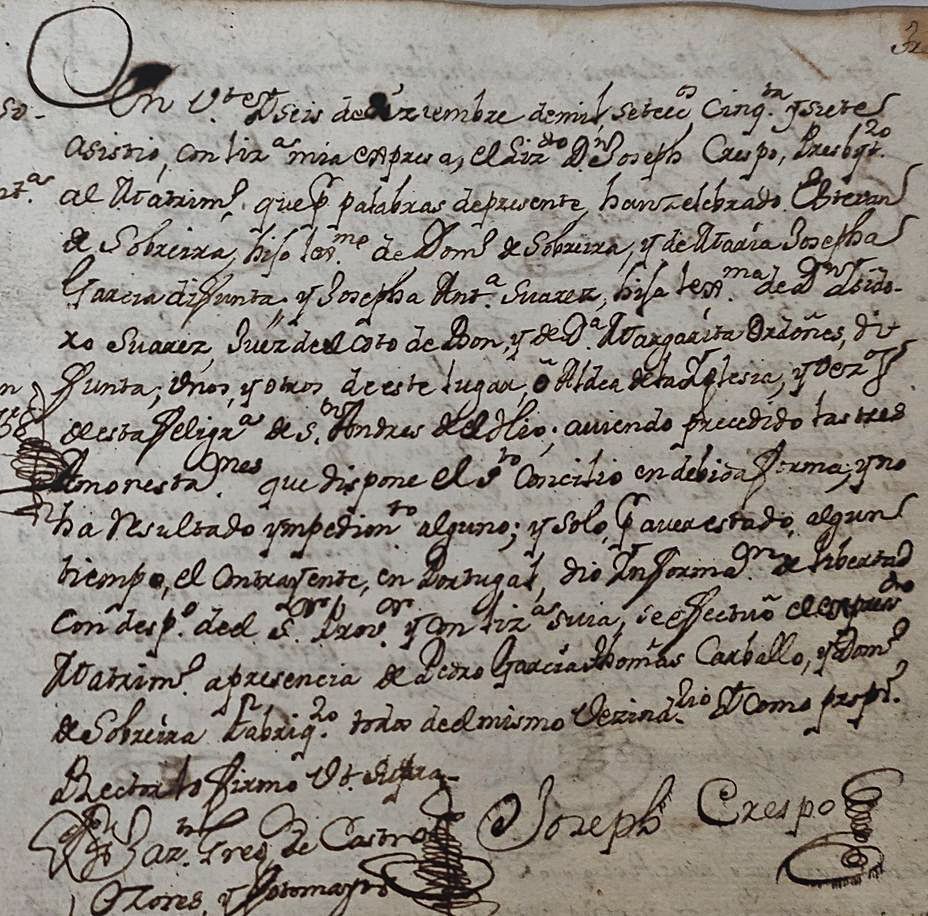 En v.te y seis de Diziembre de mil, setec.os Cinq.ta y siete
asistio, con liz.a mia expresa, el Liz.do D.n Joseph Crespo, Presbyt.ro
al Matrim.o que p.r palabras de presente, han zelebrado Estevan
de Sobreira, hijo lex.mo de Dom.o de Sobreira, y de Maria Josepha
Garcia difunta, y Josepha Ant.a Suarez, hija lex.ma de D.n Isido-
ro Suarez, Juez de el Coto de Bon, y de D.a Margarita Ordoñes, di-
funta; vnos, y otros de este lugar, ô Aldea de la Yglesia, y vez.os
de esta feligr.a de S.n Andres de el Hio; aviendo precedido las tres
Amonesta.nes que dispone el S.to Concilio en debida forma, y no
ha resultado ympedim.to alguno; y solo, p.r aver estado, algun
tiempo, el Contrayente, en Portugal, dio Informa.on de libertad
Con desp.o de el S.r Prov.or y con liz.a suia, se efectuô el expresado
Matrim.o a presencia de Pedro Garcia Thomas Carballo, y Dom.o
de Sobreira fabriq.ro todos de el mismo Vezind.rio Y Como propi.o
Rector lo firmo Vt. Supra-
Joseph Crespo
de Castro
Flores, y Sotomayor